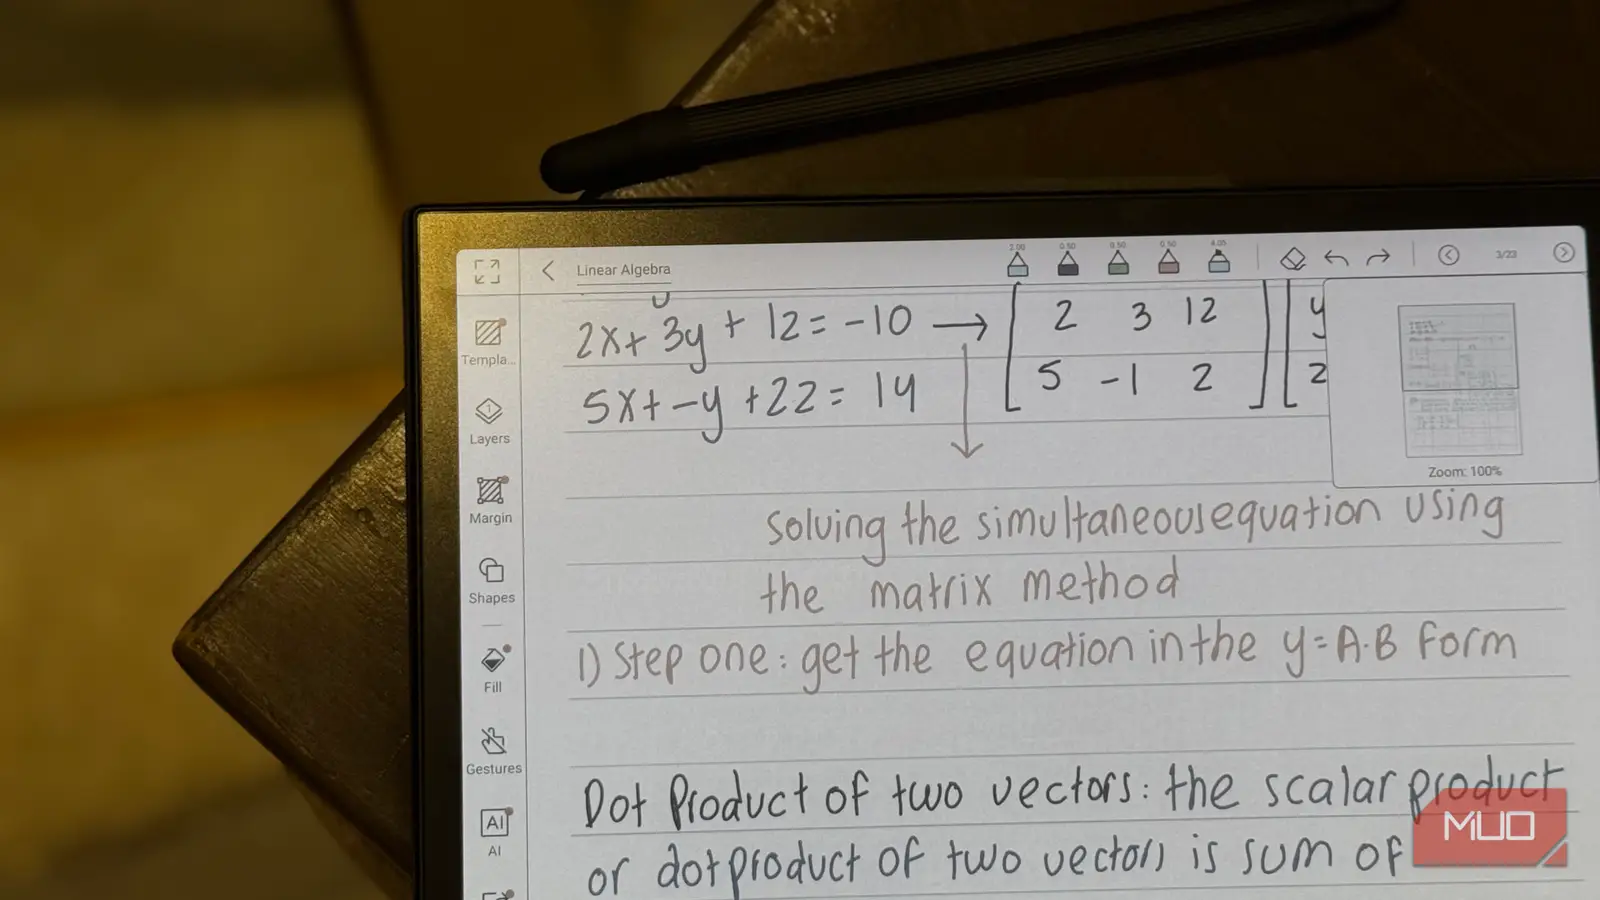 2.00 0.50 0.50 0.50 4.05
Linear Algebra
3/23
2x + 3y + 12 = -10 → [ 2 3 12 ] [ y
5x + -y + 22 = 14 [ 5 -1 2 ] [ 2
Templa...
Layers
Margin
Shapes
Fill
Gestures
AI
AI
Zoom: 100%
solving the simultaneous equation using
the matrix method
1) Step one: get the equation in the y=A·B form
Dot Product of two vectors: the scalar product
or dot product of two vectors is sum of
MUO